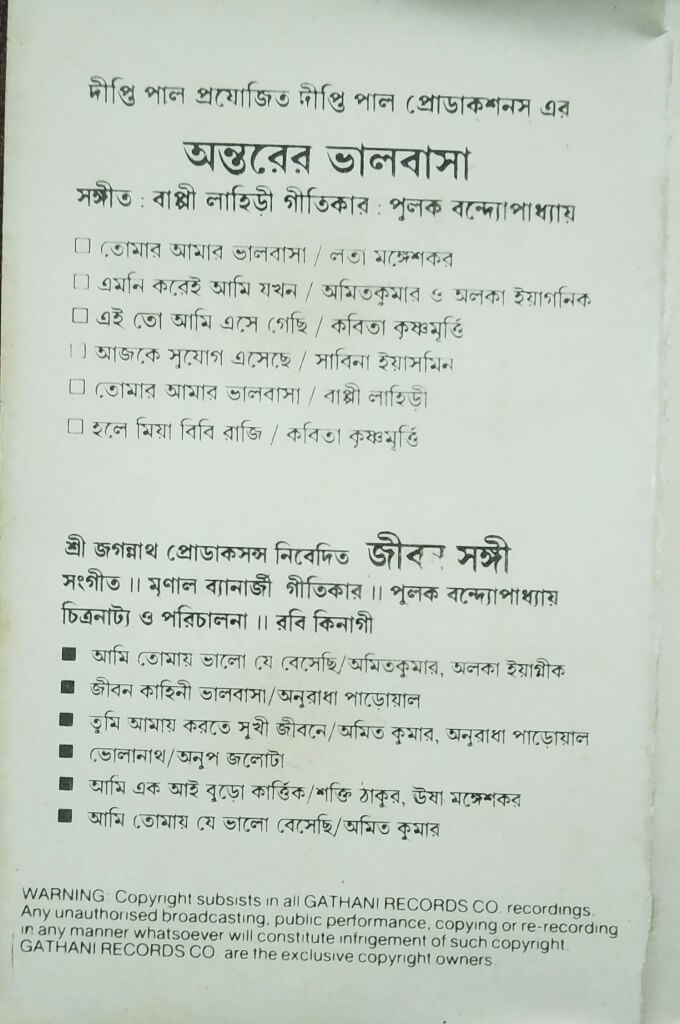 দীপ্তি পাল প্রযোজিত দীপ্তি পাল প্রোডাকশনস এর
অন্তরের ভালবাসা
সঙ্গীত : বাপ্পী লাহিড়ী গীতিকার : পুলক বন্দ্যোপাধ্যায়
□ তোমার আমার ভালবাসা / লতা মঙ্গেশকর
□ এমনি করেই আমি যখন / অমিতকুমার ও অলকা ইয়াগনিক
□ এই তো আমি এসে গেছি / কবিতা কৃষ্ণমূর্ত্তি
□ আজকে সুযোগ এসেছে / সাবিনা ইয়াসমিন
□ তোমার আমার ভালবাসা / বাপ্পী লাহিড়ী
□ হলে মিয়া বিবি রাজি / কবিতা কৃষ্ণমূর্ত্তি
শ্রী জগন্নাথ প্রোডাকসন্স নিবেদিত জীবন সঙ্গী
সংগীত ॥ মৃণাল ব্যানার্জী গীতিকার ॥ পুলক বন্দ্যোপাধ্যায়
চিত্রনাট্য ও পরিচালনা ॥ রবি কিনাগী
■ আমি তোমায় ভালো যে বেসেছি/অমিতকুমার, অলকা ইয়াগ্নীক
■ জীবন কাহিনী ভালবাসা/অনুরাধা পাড়োয়াল
■ তুমি আমায় করতে সুখী জীবনে/অমিত কুমার, অনুরাধা পাড়োয়াল
■ ভোলানাথ/অনুপ জলোটা
■ আমি এক আই বুড়ো কার্ত্তিক/শক্তি ঠাকুর, ঊষা মঙ্গেশকর
■ আমি তোমায় যে ভালো বেসেছি/অমিত কুমার
WARNING: Copyright subsists in all GATHANI RECORDS CO. recordings.
Any unauthorised broadcasting, public performance, copying or re-recording
in any manner whatsoever will constitute infrigement of such copyright.
GATHANI RECORDS CO. are the exclusive copyright owners.